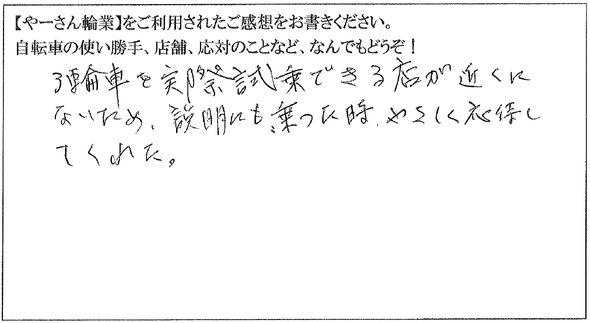 【やーさん輪業】をご利用されたご感想をお書きください。
自転車の使い勝手、店舗、応対のことなど、なんでもどうぞ！
3輪車を実際試乗できる店が近くに
ないため、説明にも乗った時、やさしく応待し
てくれた。